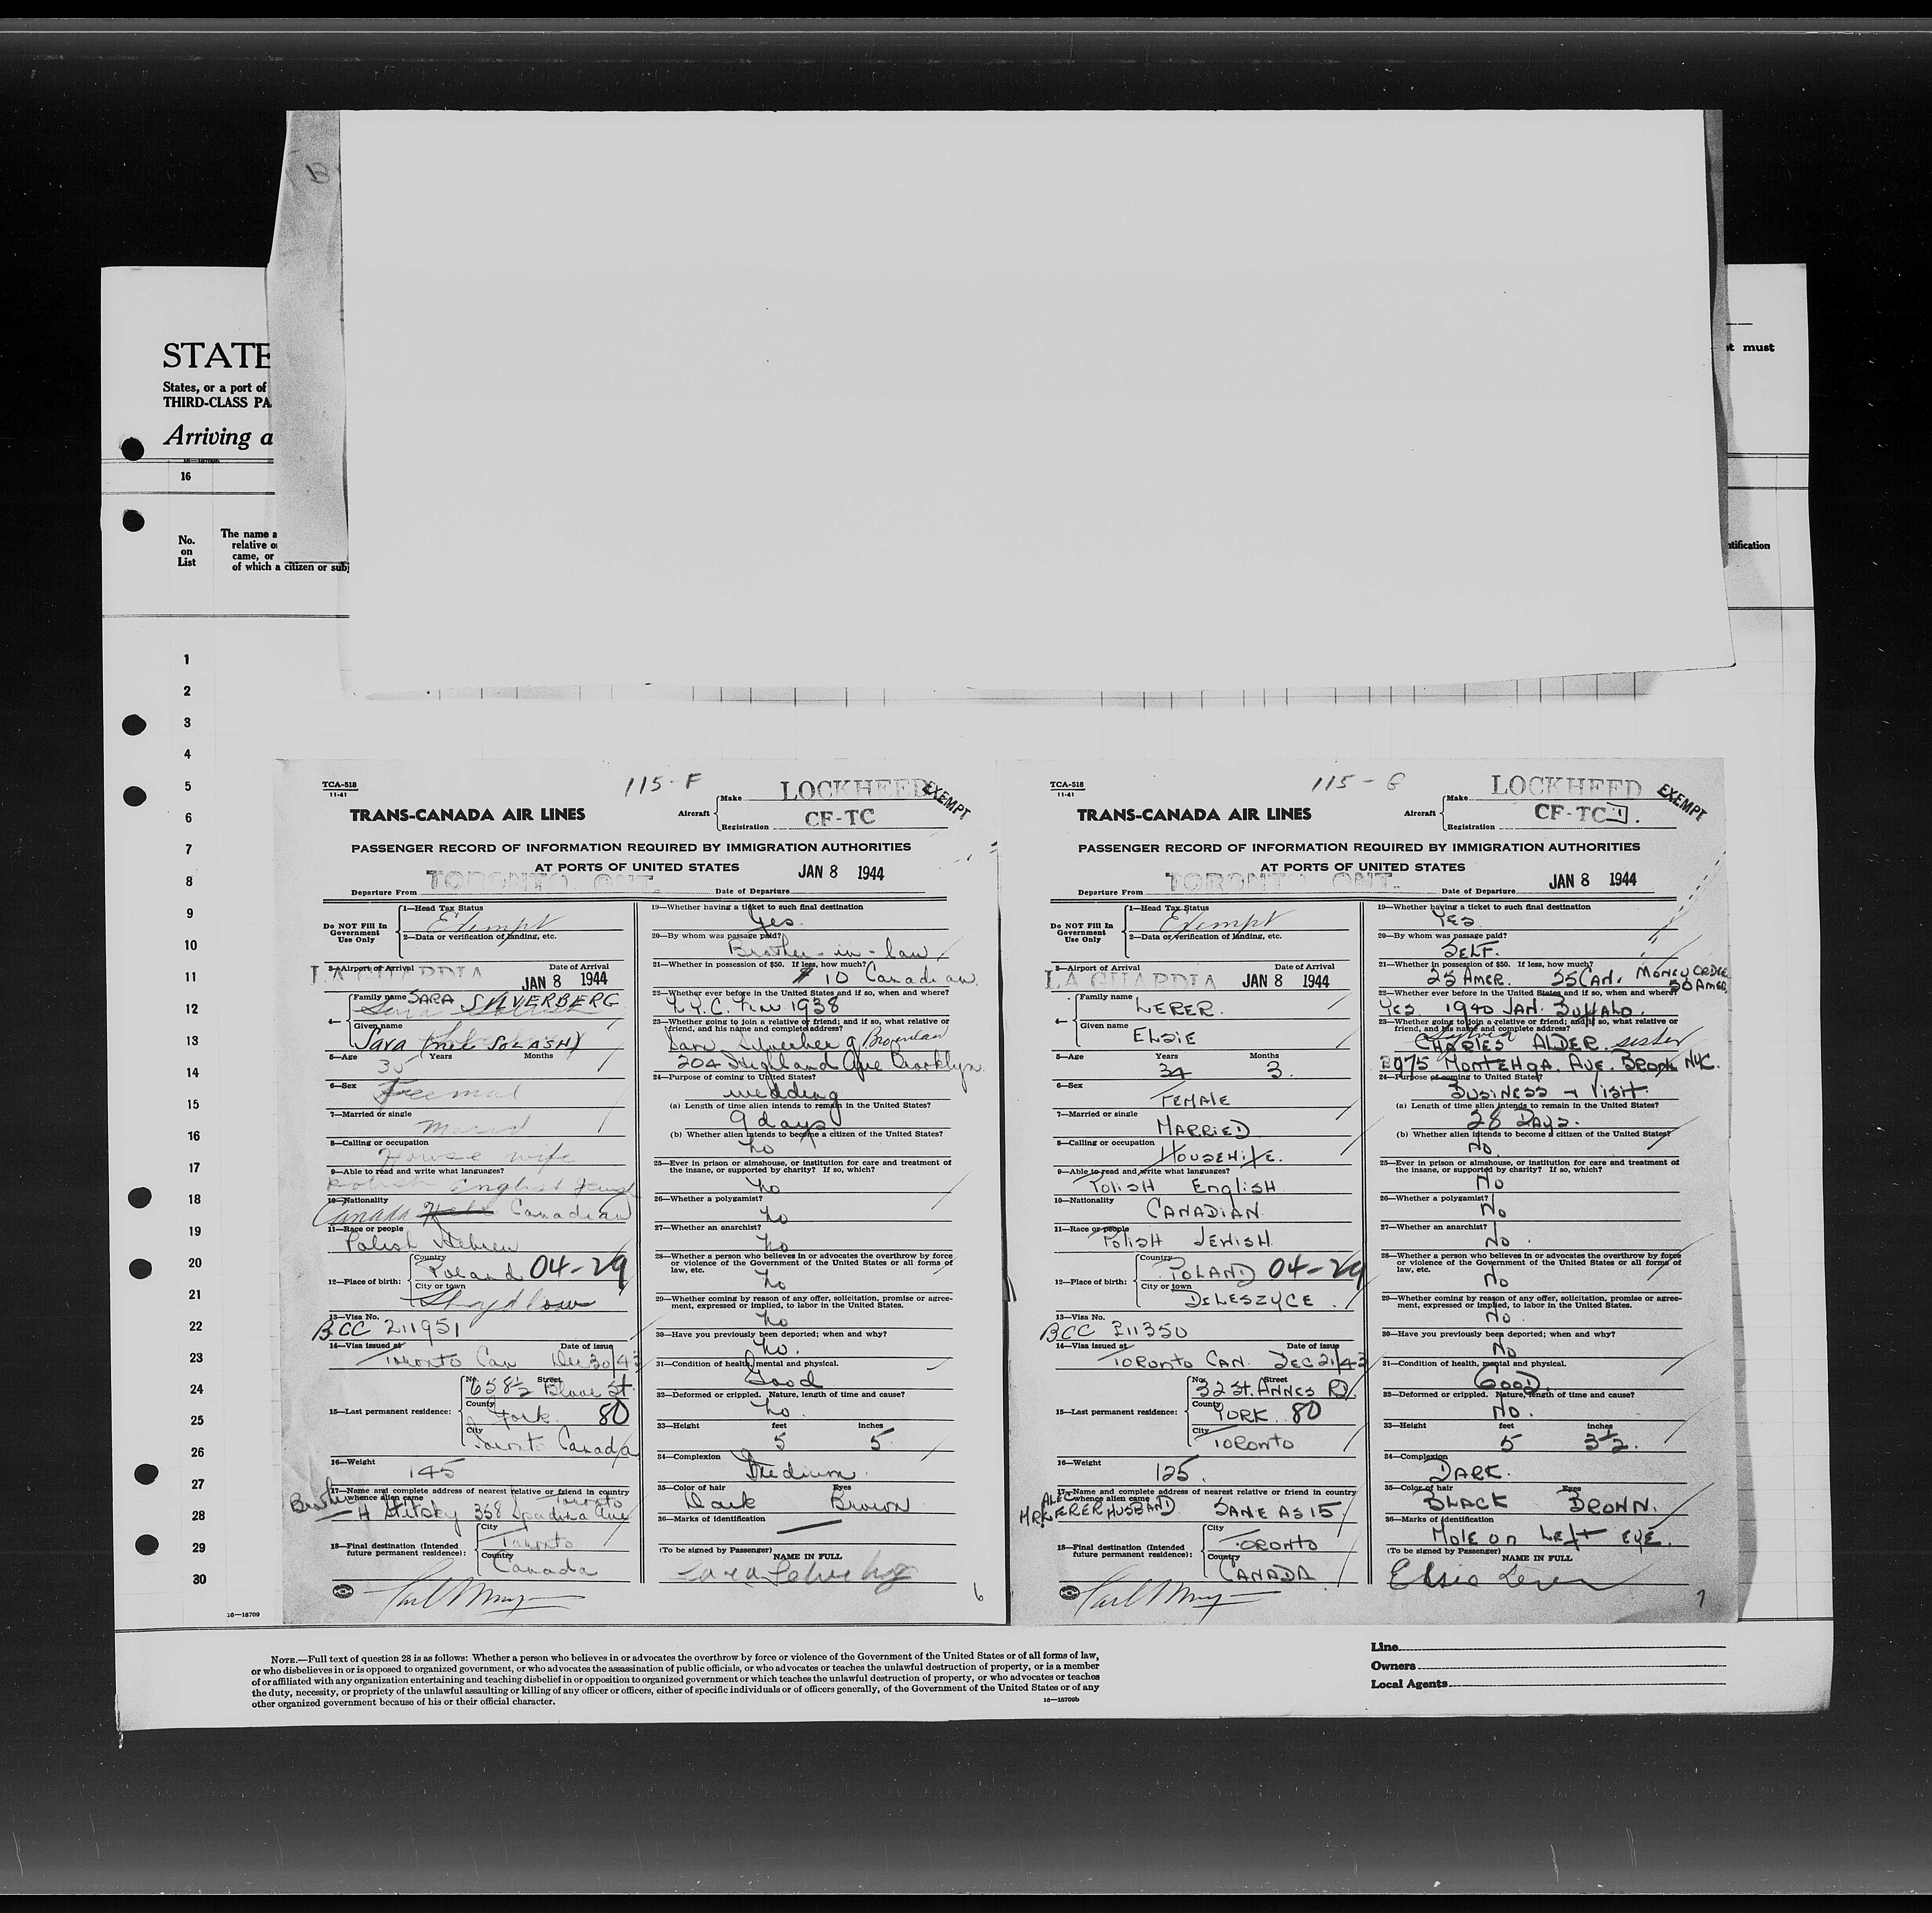 STATE
States, or a port of
THIRD-CLASS PA
Arriving a
t must
16
No.
on
List
The name a
relative o
came, or
of which a citizen or subj
ntification
1
2
3
4
5
6
7
8
9
10
11
12
13
14
15
16
17
18
19
20
21
22
23
24
25
26
27
28
29
30
16—18709
TCA-518
11-41
115-F
TRANS-CANADA AIR LINES
Aircraft
Make LOCKHEED
Registration CF-TC
EXEMPT
PASSENGER RECORD OF INFORMATION REQUIRED BY IMMIGRATION AUTHORITIES
AT PORTS OF UNITED STATES
Departure From TORONTO, ONT. Date of Departure JAN 8 1944
Do NOT Fill In
Government
Use Only
1—Head Tax Status
Exempt
2—Data or verification of landing, etc.
3—Airport of Arrival Date of Arrival
LA GUARDIA JAN 8 1944
4—
Family name SARA SILVERBERG
Given name
Sara (née SOLASH)
5—Age Years Months
35
6—Sex
Feemal
7—Married or single
Maried
8—Calling or occupation
House wife
9—Able to read and write what languages?
Polish English
10—Nationality
Canada Canadian
11—Race or people
Polish Hebrew
12—Place of birth:
Country
Poland 04-29
City or town
13—Visa No.
BCC 211951
14—Visa issued at Date of issue
Toronto Can Dec 30/43
15—Last permanent residence:
No. Street
658½ Bloor St.
County
York 80
City
Toronto Canada
16—Weight
145
17—Name and complete address of nearest relative or friend in country
whence alien came
Toronto
Brother H 358 Spadina Ave
18—Final destination (Intended
future permanent residence):
City
Toronto
Country
Canada
19—Whether having a ticket to such final destination
Yes.
20—By whom was passage paid?
Brother-in-law
21—Whether in possession of $50. If less, how much?
$10 Canadian
22—Whether ever before in the United States and if so, when and where?
N.Y.C. Nov 1938
23—Whether going to join a relative or friend; and if so, what relative or
friend, and his name and complete address?
Sam Silverberg Bro-in-law
204 Highland Ave Brooklyn.
24—Purpose of coming to United States?
wedding
(a) Length of time alien intends to remain in the United States?
9 days
(b) Whether alien intends to become a citizen of the United States?
no
25—Ever in prison or almshouse, or institution for care and treatment of
the insane, or supported by charity? If so, which?
no
26—Whether a polygamist?
no
27—Whether an anarchist?
no
28—Whether a person who believes in or advocates the overthrow by force
or violence of the Government of the United States or all forms of
law, etc.
no
29—Whether coming by reason of any offer, solicitation, promise or agree-
ment, expressed or implied, to labor in the United States.
no
30—Have you previously been deported; when and why?
no.
31—Condition of health, mental and physical.
Good
32—Deformed or crippled. Nature, length of time and cause?
no.
33—Height feet inches
5 5
34—Complexion
Medium
35—Color of hair Eyes
Dark Brown
36—Marks of identification
(To be signed by Passenger)
NAME IN FULL
6
TCA-518
11-41
115-G
TRANS-CANADA AIR LINES
Aircraft
Make LOCKHEED
Registration CF-TC
EXEMPT
PASSENGER RECORD OF INFORMATION REQUIRED BY IMMIGRATION AUTHORITIES
AT PORTS OF UNITED STATES
Departure From TORONTO, ONT. Date of Departure JAN 8 1944
Do NOT Fill In
Government
Use Only
1—Head Tax Status
Exempt
2—Data or verification of landing, etc.
3—Airport of Arrival Date of Arrival
LA GUARDIA JAN 8 1944
4—
Family name
LERER.
Given name
ELSIE
5—Age Years Months
34 3.
6—Sex
FEMALE
7—Married or single
MARRIED
8—Calling or occupation
HOUSEWIFE.
9—Able to read and write what languages?
POLISH ENGLISH
10—Nationality
CANADIAN
11—Race or people
POLISH JEWISH
12—Place of birth:
Country
POLAND 04-29
City or town
DELESZYCE
13—Visa No.
BCC 211350
14—Visa issued at Date of issue
TORONTO CAN. DEC 21/43
15—Last permanent residence:
No. Street
32 St. ANNES RD.
County
YORK 80
City
TORONTO
16—Weight
125.
17—Name and complete address of nearest relative or friend in country
whence alien came
ALEC
MR LERER HUSBAND SAME AS 15
18—Final destination (Intended
future permanent residence):
City
TORONTO
Country
CANADA
19—Whether having a ticket to such final destination
YES
20—By whom was passage paid?
SELF.
21—Whether in possession of $50. If less, how much?
25 AMER. 25 CAN. MONEY ORDER
50 AMER.
22—Whether ever before in the United States and if so, when and where?
YES 1940 JAN. BUFFALO.
23—Whether going to join a relative or friend; and if so, what relative or
friend, and his name and complete address?
CHARLES ALDER. sister
2075 MONTEHGA. AVE. BRONX NYC.
24—Purpose of coming to United States?
BUSINESS → VISIT
(a) Length of time alien intends to remain in the United States?
28 DAYS.
(b) Whether alien intends to become a citizen of the United States?
NO.
25—Ever in prison or almshouse, or institution for care and treatment of
the insane, or supported by charity? If so, which?
NO
26—Whether a polygamist?
NO
27—Whether an anarchist?
NO.
28—Whether a person who believes in or advocates the overthrow by force
or violence of the Government of the United States or all forms of
law, etc.
NO
29—Whether coming by reason of any offer, solicitation, promise or agree-
ment, expressed or implied, to labor in the United States.
NO.
30—Have you previously been deported; when and why?
NO
31—Condition of health, mental and physical.
GOOD.
32—Deformed or crippled. Nature, length of time and cause?
NO.
33—Height feet inches
5 3½.
34—Complexion
DARK.
35—Color of hair Eyes
BLACK BROWN.
36—Marks of identification
MOLE ON LEFT EYE.
(To be signed by Passenger)
NAME IN FULL
Elsie Lerer
7
NOTE.—Full text of question 28 is as follows: Whether a person who believes in or advocates the overthrow by force or violence of the Government of the United States or of all forms of law,
or who disbelieves in or is opposed to organized government, or who advocates the assassination of public officials, or who advocates or teaches the unlawful destruction of property, or is a member
of or affiliated with any organization entertaining and teaching disbelief in or opposition to organized government or which teaches the unlawful destruction of property, or who advocates or teaches
the duty, necessity, or propriety of the unlawful assaulting or killing of any officer or officers, either of specific individuals or of officers generally, of the Government of the United States or of any
other organized government because of his or their official character.
16—18709b
Line
Owners
Local Agents